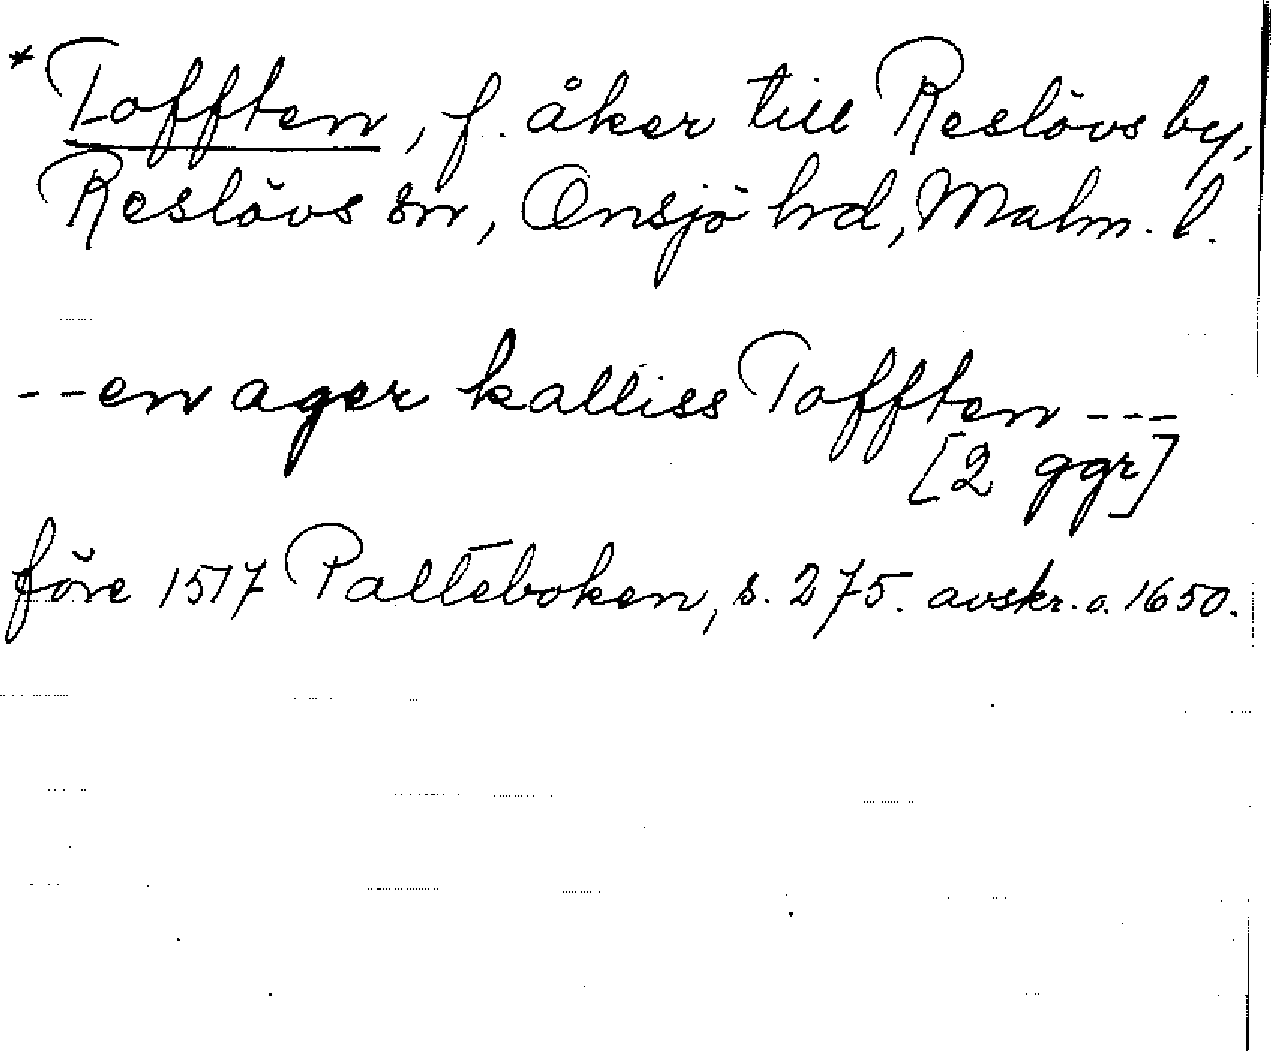 *Tofften, f. åker till Reslövs by,
Reslövs sn, Onsjö hrd, Malm. l.
--en ager kalliss Tofften ---
[2 ggr]
före 1517 Palteboken, s. 275. avskr. o. 1650.